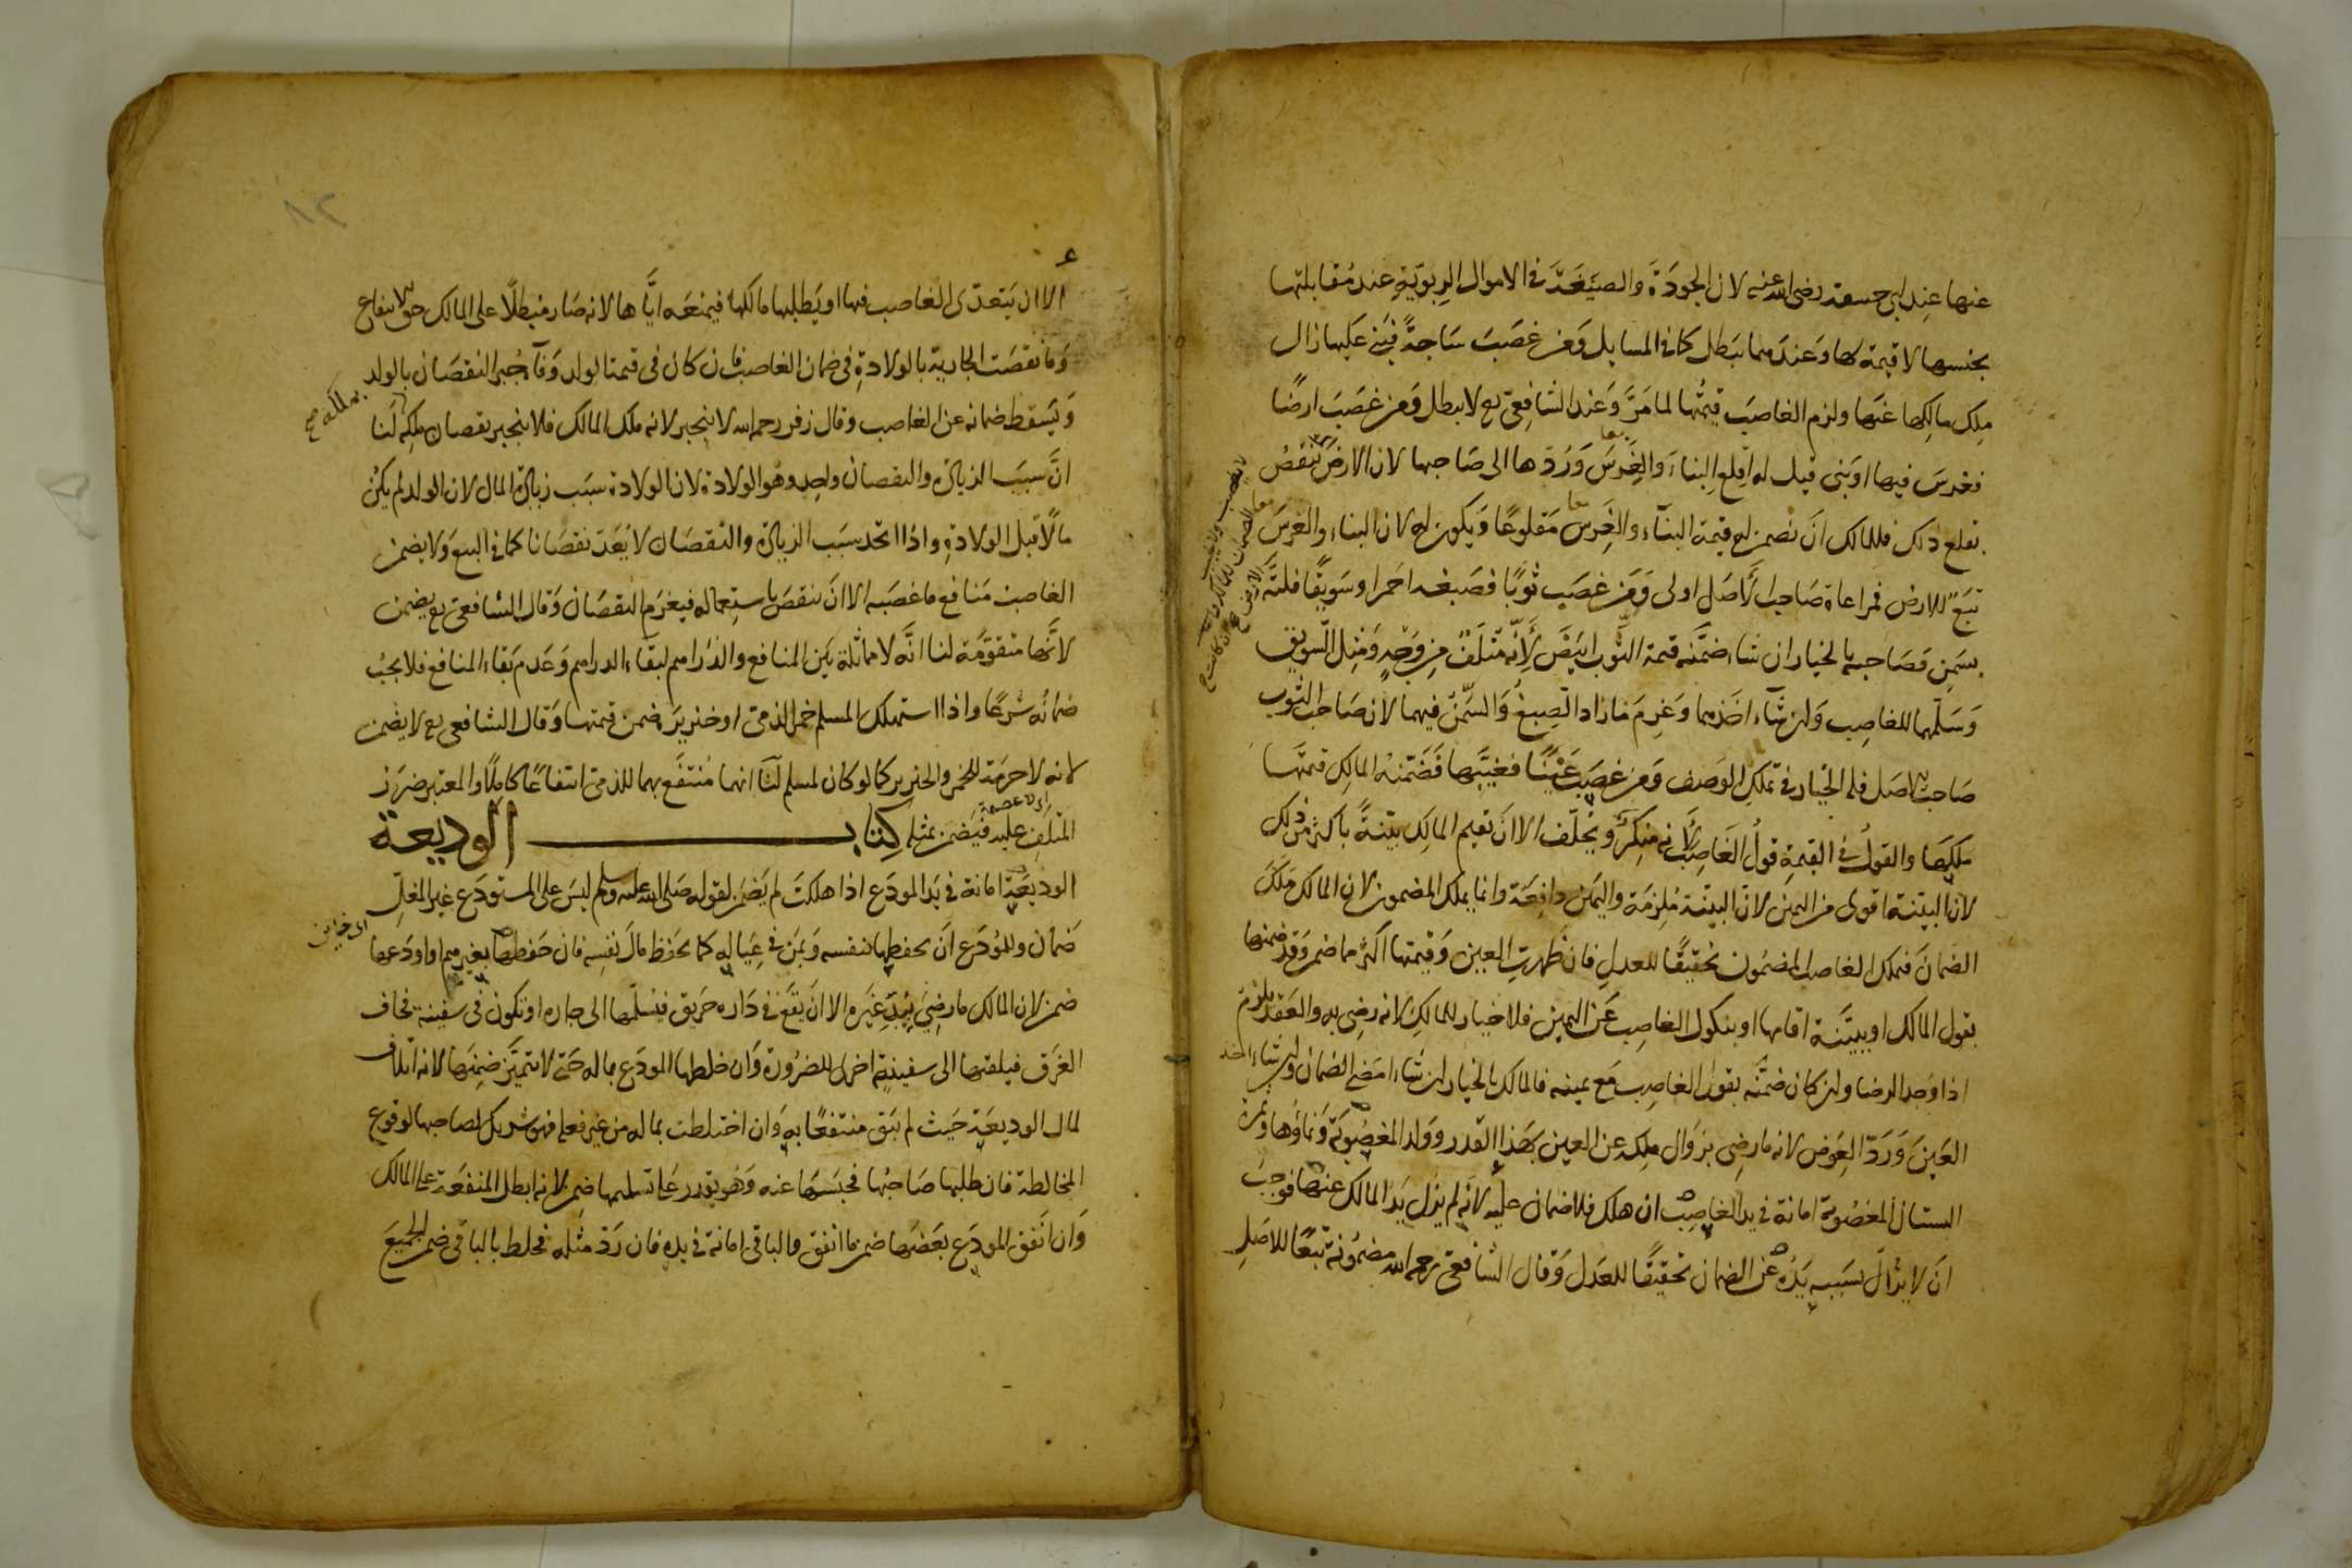 عنها عند ابي حنيفة رضى الله عنه لان الجودة والصيغة في الاموال الربوية عند مقابلتها
بجنسها لا قيمة لها وعندهما تبطل كما في المسايل ومن غصب ساجة فبنى عليها زال
ملك مالكها عنها ولزم الغاصب قيمتها لما مر وعند الشافعي رع لا يبطل ومن غصب ارضا
فغرس فيها او بنى قيل له اقلع البناء والغرس وردها الى صاحبها لان الارض تنقص
بقلع ذلك فللمالك ان يضمن له قيمة البناء والغرس مقلوعا ويكون له لان البناء والغرس
تبع للارض فمراعاة صاحب الاصل اولى ومن غصب ثوبا فصبغه احمر او سويقا فلته
بسمن فصاحبه بالخيار ان شاء ضمنه قيمة الثوب ابيض لانه متلف من وجه ومثل السويق
وسلمهما للغاصب وان شاء اخذهما وغرم ما زاد الصبغ والسمن فيهما لان صاحب الثوب
صاحب الاصل فله الخيار في تملك الوصف ومن غصب عينا فغيبها فضمنه المالك قيمتها
ملكها والقول في القيمة قول الغاصب لانه منكر ويحلف الا ان تقيم المالك بينة باكثر من ذلك
لان البينة اقوى من اليمين لان البينة ملزمة واليمين دافعة وانما يملك المضمون لان المالك ملك
الضمان فتملك الغاصب المضمون تحقيقا للعدل فان ظهرت العين وقيمتها اكثر مما ضمن وقد ضمنها
بقول المالك او ببينة اقامها او بنكول الغاصب عن اليمين فلا خيار للمالك لانه رضى به والعقد يلزم
اذا وجد الرضا وان كان ضمنه بقول الغاصب مع يمينه فالمالك بالخيار ان شاء امضى الضمان وان شاء اخذ
العين ورد العوض لانه ما رضى بزوال ملكه عن العين بهذا القدر وولد المغصوبة ونماؤها وثمرة
البستان المغصوبة امانة في يد الغاصب ان هلك فلا ضمان عليه لانه لم يزل يد المالك عنها فوجب
ان لا يزال بسببه يده عن الضمان تحقيقا للعدل وقال الشافعي رحمه الله مضمونة تبعا للاصل
٨٢
الا ان يتعدى الغاصب فيها او يطلبها مالكها فيمنعه اياها لانه صار مبطلا على المالك حق الانتفاع
وما نقصت الجارية بالولادة في ضمان الغاصب فان كان في قيمة الولد وفاء جبر النقصان بالولد
ويسقط ضمانه عن الغاصب وقال زفر رحمه الله لا ينجبر لانه ملك المالك فلا ينجبر نقصان ملكه لنا
بملكه صح
ان سبب الزيادة والنقصان واحد وهو الولادة لان الولادة سبب زيادة المال لان الولد لم يكن
مالا قبل الولادة واذا اتحد سبب الزيادة والنقصان لا يعد نقصانا كما في البيع ولا يضمن
الغاصب منافع ما غصبه الا ان ينقص باستعماله فيغرم النقصان وقال الشافعي رع يضمن
لانها متقومة لنا انه لا مماثلة بين المنافع والدراهم لبقاء الدراهم وعدم بقاء المنافع فلا يجب
ضمانه شرعا واذا استهلك المسلم خمر الذمى او خنزيره ضمن قيمتها وقال الشافعي رع لا يضمن
لانه لا حرمة للخمر والخنزير كما لو كان لمسلم لنا انهما منتفع بهما للذمى انتفاعا كاملا والمعتبر ضرر
المتلف عليه فيضمن بمثله كتاب الوديعة
الوديعة امانة في يد المودع اذا هلكت لم يضمن لقوله صلى الله عليه وسلم ليس على المستودع غير المغل
ضمان وللمودع ان يحفظها بنفسه وبمن في عياله كما يحفظ مال نفسه فان حفظها بغيرهم او اودعها
ضمن لان المالك ما رضى بيد غيره الا ان يقع في داره حريق فيسلمها الى جاره او تكون في سفينة فخاف
الغرق فيلقيها الى سفينة اخرى للضرورة وان خلطها المودع بماله حتى لا تتميز ضمنها لانه اتلاف
لمال الوديعة حيث لم يبق منتفعا به وان اختلطت بماله من غير فعله فهو شريك لصاحبها لوقوع
المخالطة فان طلبها صاحبها فحبسها عنه وهو يقدر على تسليمها ضمن لانه ابطل المنفعة على المالك
وان انفق المودع بعضها ضمن ما انفق والباقي امانة في يده فان رد مثله فخلط بالباقي ضمن الجميع